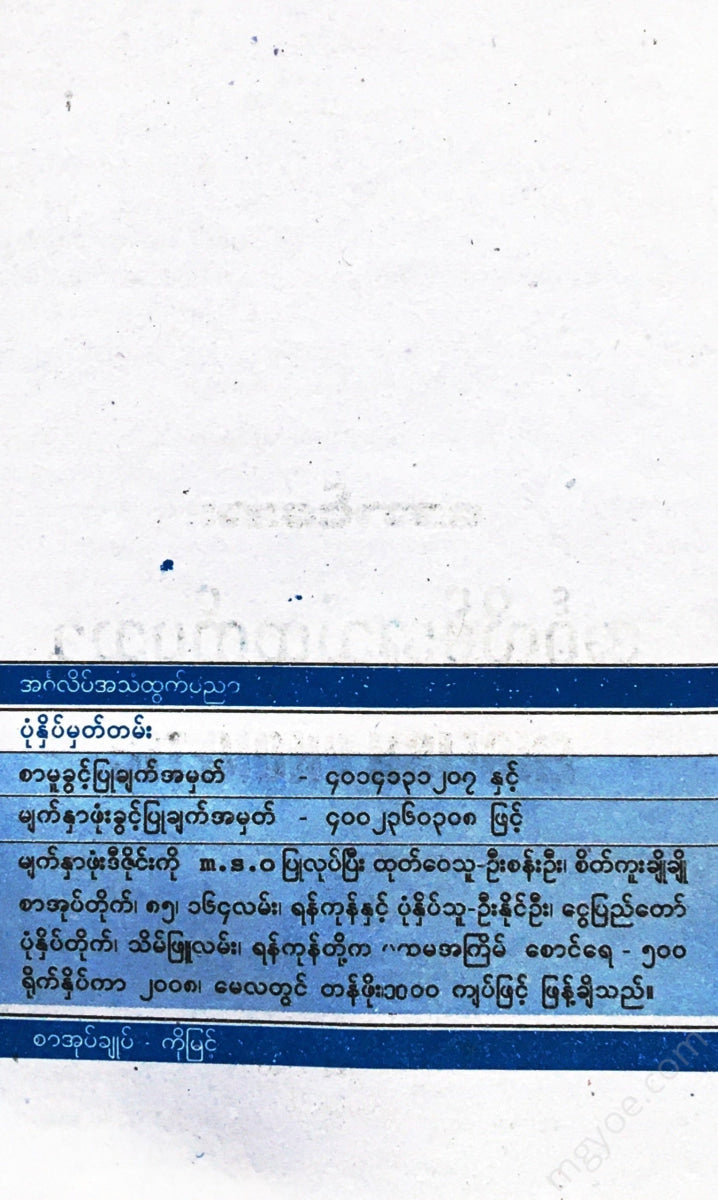 အင်္ဂလိပ်အသံထွက်ပညာ
ပုံနှိပ်မှတ်တမ်း
စာမူခွင့်ပြုချက်အမှတ် - ၄၀၁၄၁၃၁၂၀၇ နှင့်
မျက်နှာဖုံးခွင့်ပြုချက်အမှတ် - ၄၀၀၂၃၆၀၃၀၈ ဖြင့်
မျက်နှာဖုံးဒီဇိုင်းကို m.s.o ပြုလုပ်ပြီး ထုတ်ဝေသူ-ဦးစန်းဦး၊ စိတ်ကူးချိုချို
စာအုပ်တိုက်၊ ၈၅၊ ၁၆၄လမ်း၊ ရန်ကုန်နှင့် ပုံနှိပ်သူ-ဦးနိုင်ဦး၊ ငွေပြည်တော်
ပုံနှိပ်တိုက်၊ သိမ်ဖြူလမ်း၊ ရန်ကုန်တို့က အကြိမ် စောင်ရေ - ၅၀၀
ရိုက်နှိပ်ကာ ၂၀၀၈၊ မေလတွင် တန်ဖိုး ကျပ်ဖြင့် ဖြန့်ချိသည်။
စာအုပ်ချုပ် - ကိုမြင့်
mgyoe.com